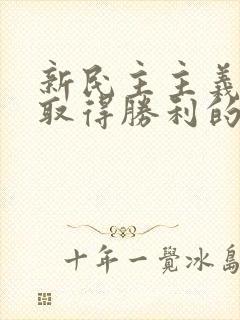 新民主主義
取得勝利的
十年一覺冰島